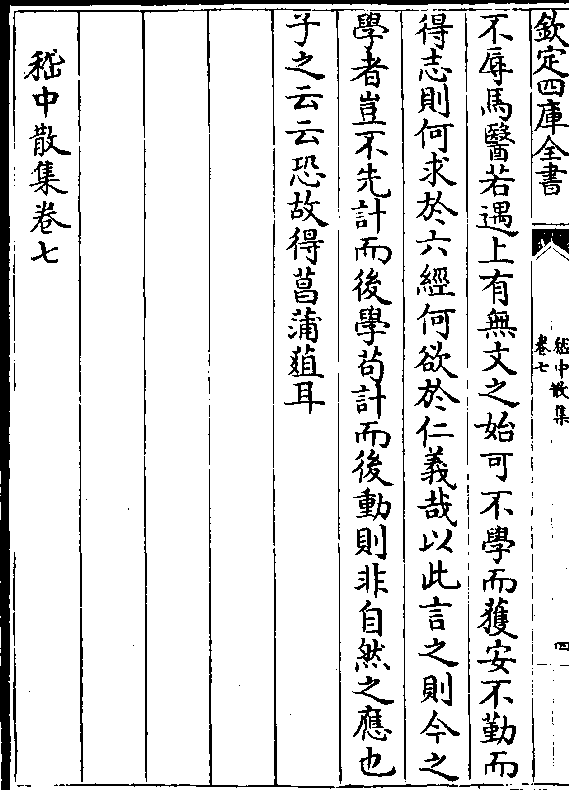 欽定四庫全書
嵇中散集
卷七
四
不辱馬醫若遇上有無文之始可不學而獲安不勤而
得志則何求於六經何欲於仁義哉以此言之則今之
學者豈不先計而後學苟計而後動則非自然之應也
子之云云恐故得菖蒲葅耳
嵇中散集卷七